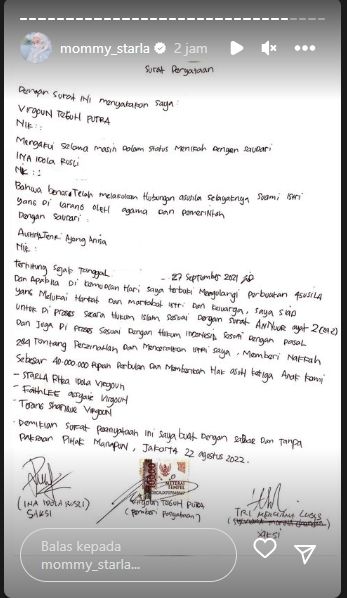 mommy_starla 2 jam
Surat Pernyataan
Dengan Surat INI menyatakan Saya :
VIRGOUN TEGUH PUTRA
Nik : :
Mengakui Selama masih Dalam Status Menikah Dengan Saudari
INA IDOLA RUSLI
Nik : :
Bahwa benar Telah melakukan Hubungan asusila Selayaknya Suami istri
Yang Di larang oleh agama dan pemerintah
Dengan Saudari :
Anisa
Nik :
Terhitung Sejak Tanggal - 27 September 2021 S/D
Dan Apabila Di kemudian Hari Saya terbukti Mengulangi Perbuatan Asusila
yang Melukai Harkat Dan Martabat istri Dan keluarga, Saya Siap
untuk Di proses Secara Hukum Islam Sesuai Dengan Surat ayat 2
Dan Juga Di Proses Sesuai Dengan Hukum Indonesia, Dengan pasal
284 Tentang Perzinahan Dan Menceraikan istri Saya, Memberi Nafkah
Sebesar 40.000.000 Rupiah Perbulan Dan Memberikan Hak asuh ketiga Anak Kami
- STARLA Rhea Idola Virgoun
- Virgoun
- Virgoun
- Demikian Surat Pernyataan ini Saya buat Dengan Sadar Dan Tanpa
Paksaan Pihak Manapun, Jakarta 22 Agustus 2022.
METERAI
TEMPEL
( INA IDOLA RUSLI )
SAKSI
VIRGOUN TEGUH PUTRA
( Pemberi Pernyataan )
TRI
SAKSI
Balas kepada
mommy_starla...